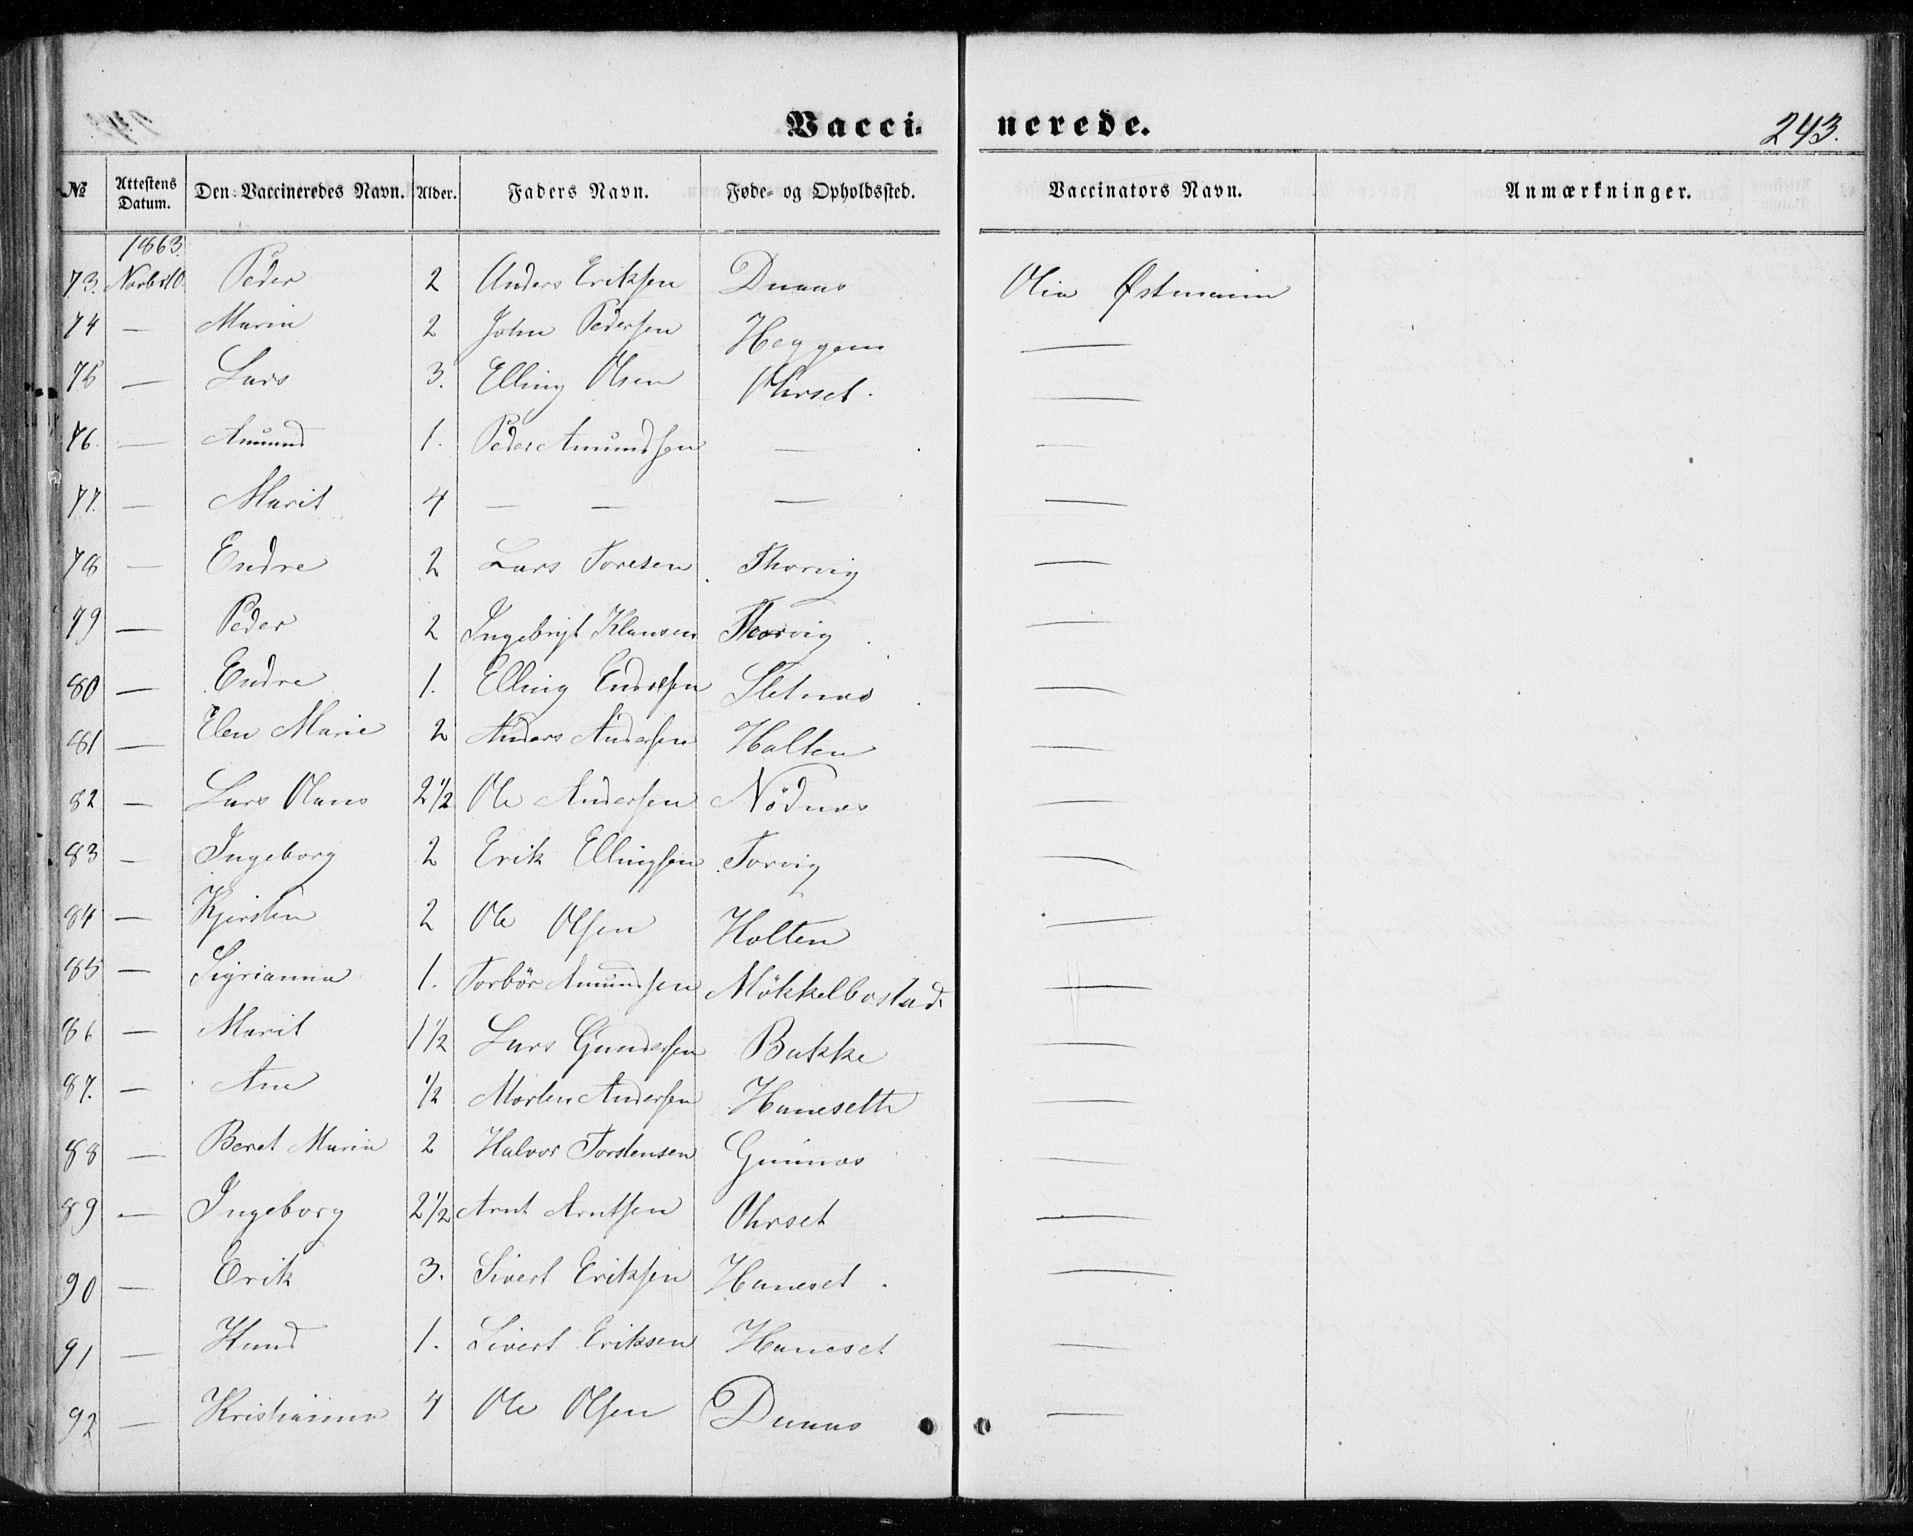 Vaccinerede.
243.
№ Attestens Datum. Den Vaccineredes Navn. Alder. Faders Navn. Føde- og Opholdssted. Vaccinators Navn. Anmærkninger.
1863.
73. Novbr 10. Peder 2 Anders Eriksen Duaas Østmann
74 — Marin 2 John Pedersen Heggem —
75 — Lars 3. Elling Olsen Ohrset. —
76. — Amund 1. Peder Amundsen — —
77. — Marit 4 — — — —
78 — Endre 2 Lars Toresen Thorvig —
79 — Peder 2 Ingebrigt Klausen Thorvig —
80 — Endre 1. Elling Endresen Sletnæs —
81 — Elen Marie 2 Anders Andersen Halten —
82 — Lars Olaus 2 1/2 Ole Andersen Nödnæs —
83 — Ingeborg 2 Erik Ellingsen Torvig —
84 — Kjersten 2 Ole Olsen Holten —
85 — Sigrianna 1. Torbör Amundsen Mökkelbostad. —
86 — Marit 1 1/2 Lars Gundersen Bakke —
87. — Ane 1/2 Morten Andersen Haneseth —
88 — Beret Maria 2 Halvor Torstensen —
89 — Ingeborg 2 1/2 Arnt Arntsen Ohrset —
90 — Erik 3. Sivert Eriksen Haneset. —
91 — Knud 1. Sivert Eriksen Haneset —
92 — Kristianna 4 Ole Olsen Duaas —